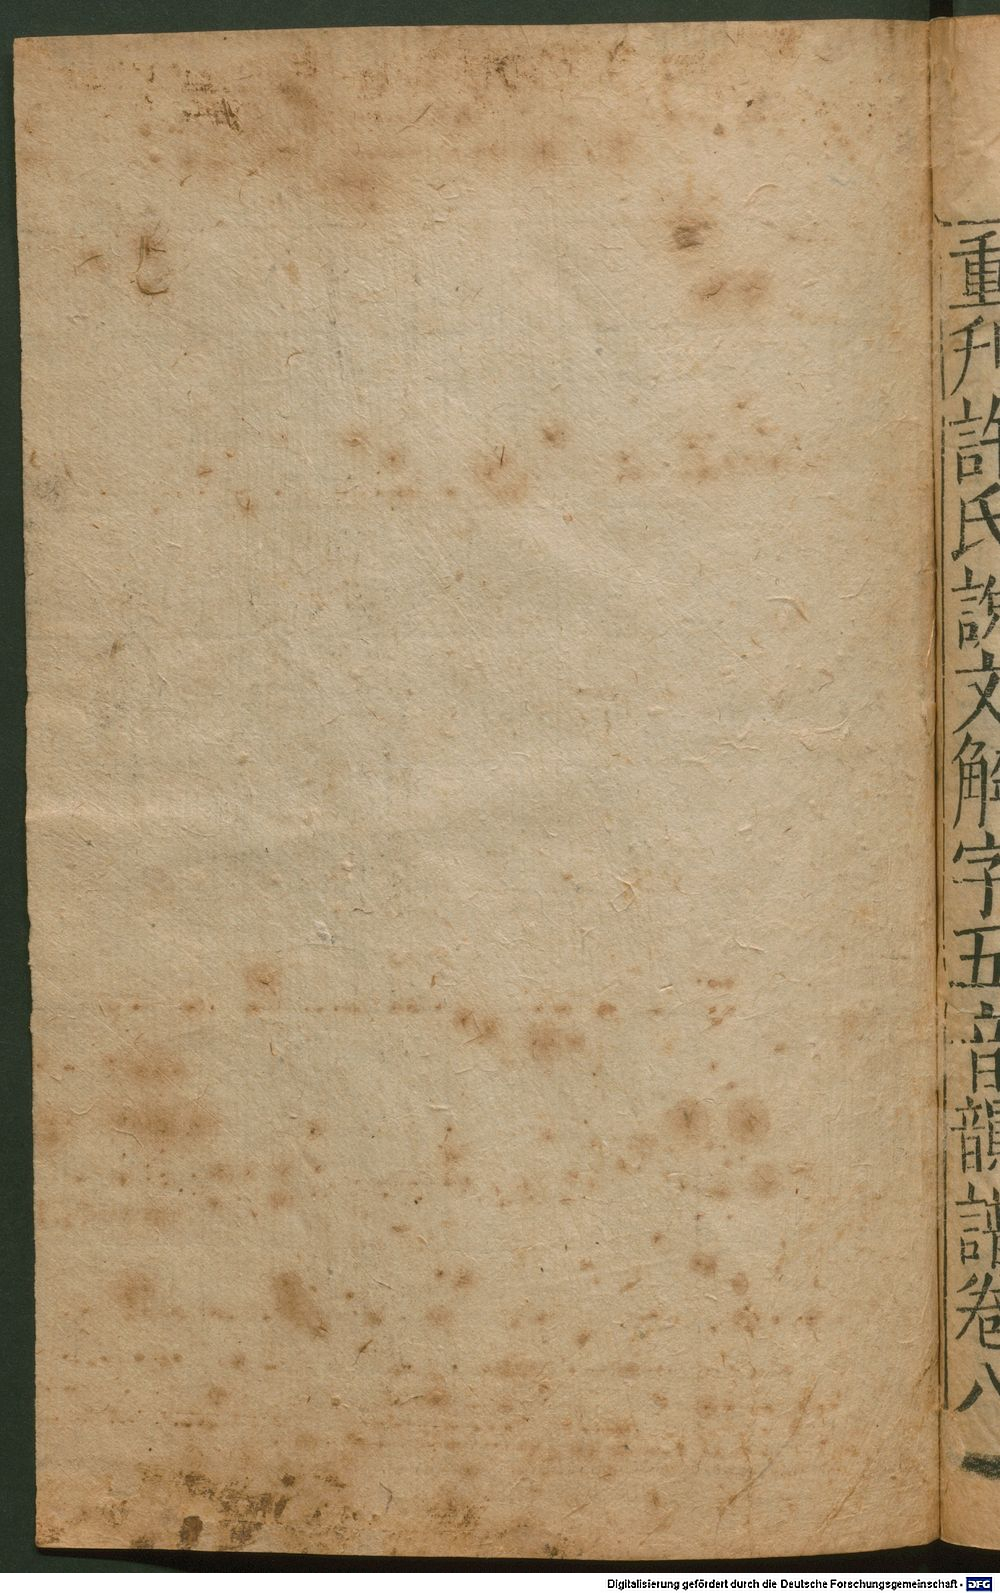 重刊許氏說文解字五音韻譜卷八
Digitalisierung gefördert durch die Deutsche Forschungsgemeinschaft - DFG